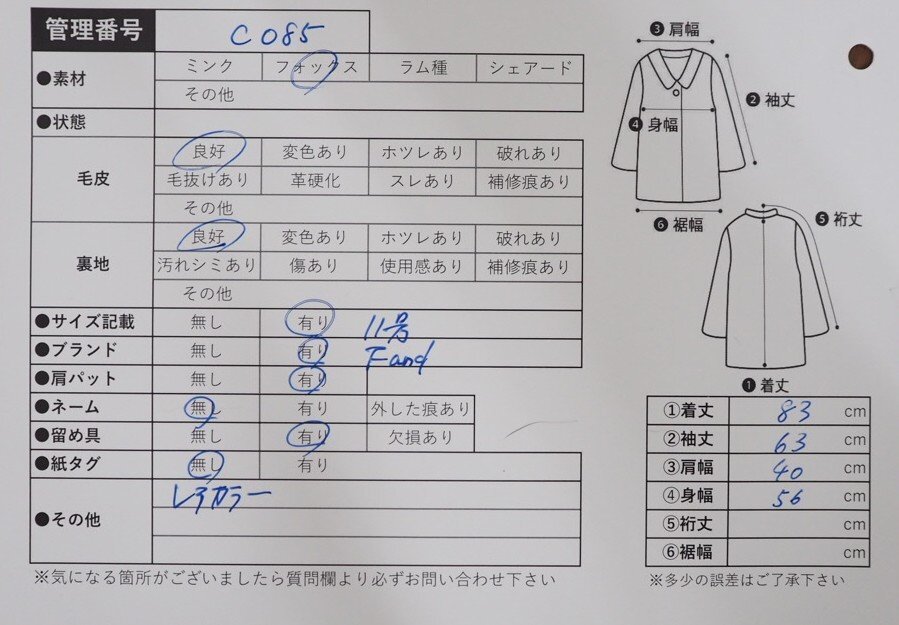 管理番号 C085
●素材 ミンク フォックス ラム種 シェアード
その他
●状態
毛皮 良好 変色あり ホツレあり 破れあり
毛抜けあり 革硬化 スレあり 補修痕あり
その他
裏地 良好 変色あり ホツレあり 破れあり
汚れシミあり 傷あり 使用感あり 補修痕あり
その他
●サイズ記載 無し 有り 11号
●ブランド 無し 有り Fand
●肩パット 無し 有り
●ネーム 無し 有り 外した痕あり
●留め具 無し 有り 欠損あり
●紙タグ 無し 有り
●その他 レアカラー
※気になる箇所がございましたら質問欄より必ずお問い合わせ下さい
❸肩幅
❷袖丈
❹身幅
❻裾幅
❺裄丈
❶着丈
①着丈 83 cm
②袖丈 63 cm
③肩幅 40 cm
④身幅 56 cm
⑤裄丈 cm
⑥裾幅 cm
※多少の誤差はご了承下さい